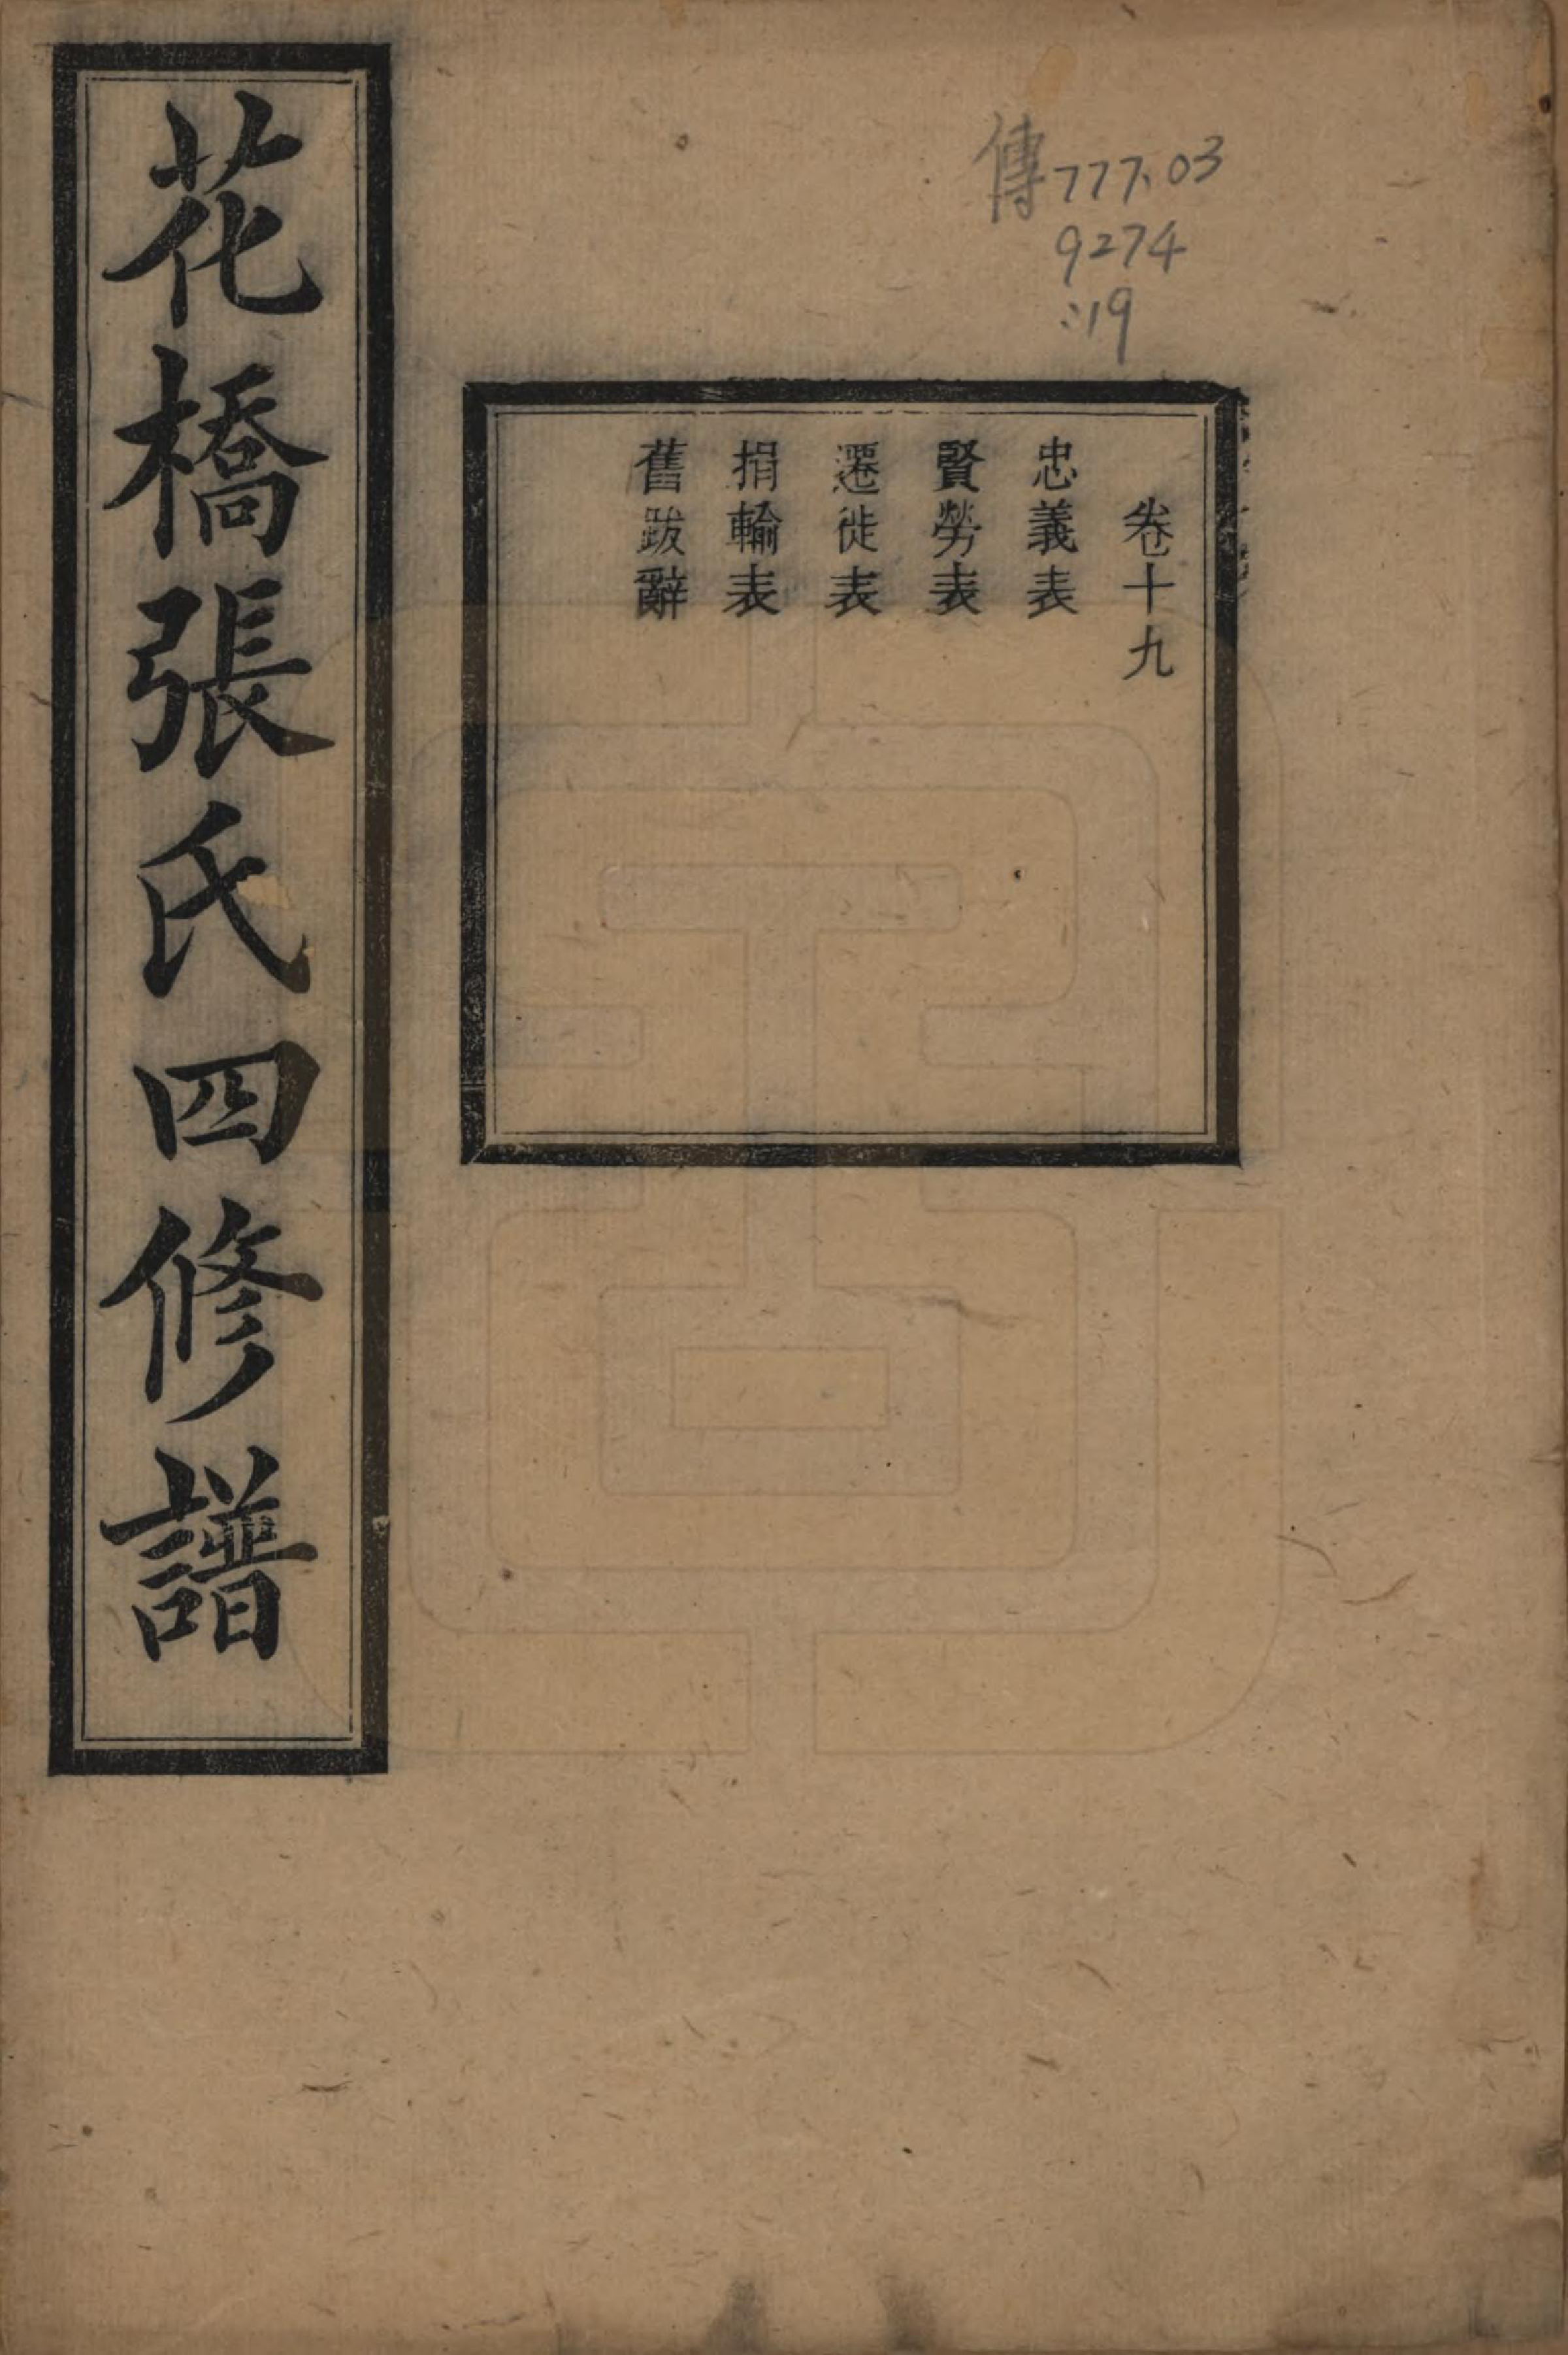 傳777.03
9274
:19
卷十九
忠義表
賢勞表
遷徙表
捐輸表
舊跋辭
花橋張氏四修譜